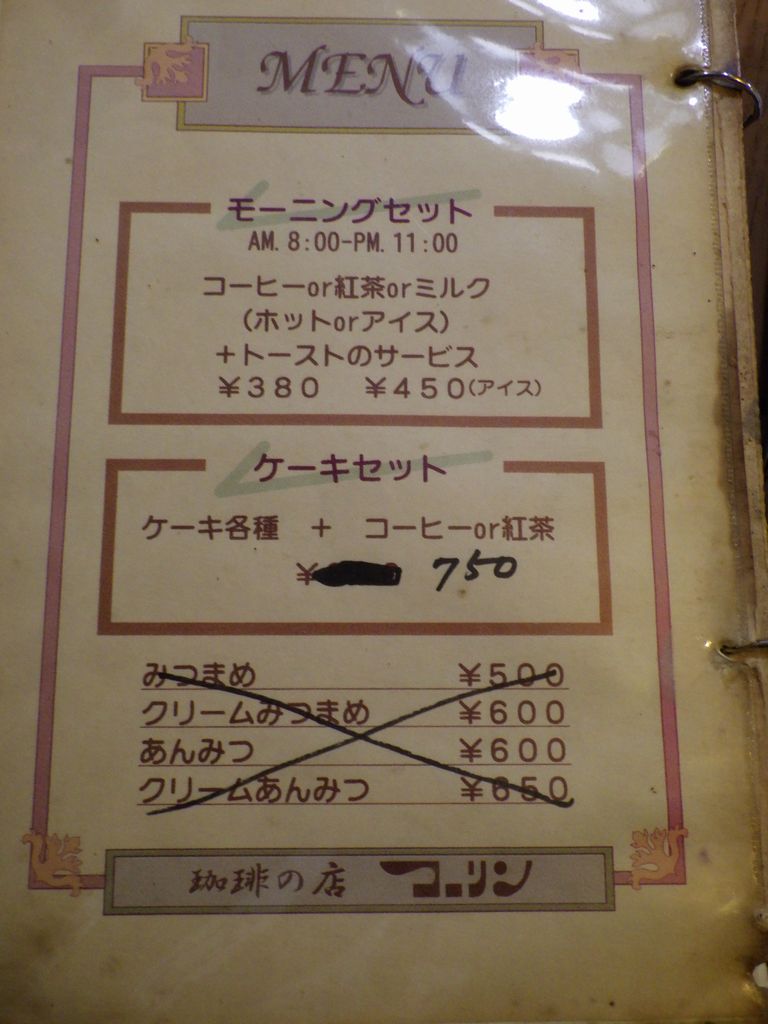 MENU
モーニングセット
AM. 8:00-PM. 11:00
コーヒーor紅茶orミルク
(ホットorアイス)
＋トーストのサービス
￥380 ￥450(アイス)
ケーキセット
ケーキ各種 ＋ コーヒーor紅茶
￥ 750
みつまめ ￥500
クリームみつまめ ￥600
あんみつ ￥600
クリームあんみつ ￥650
珈琲の店 コーリン